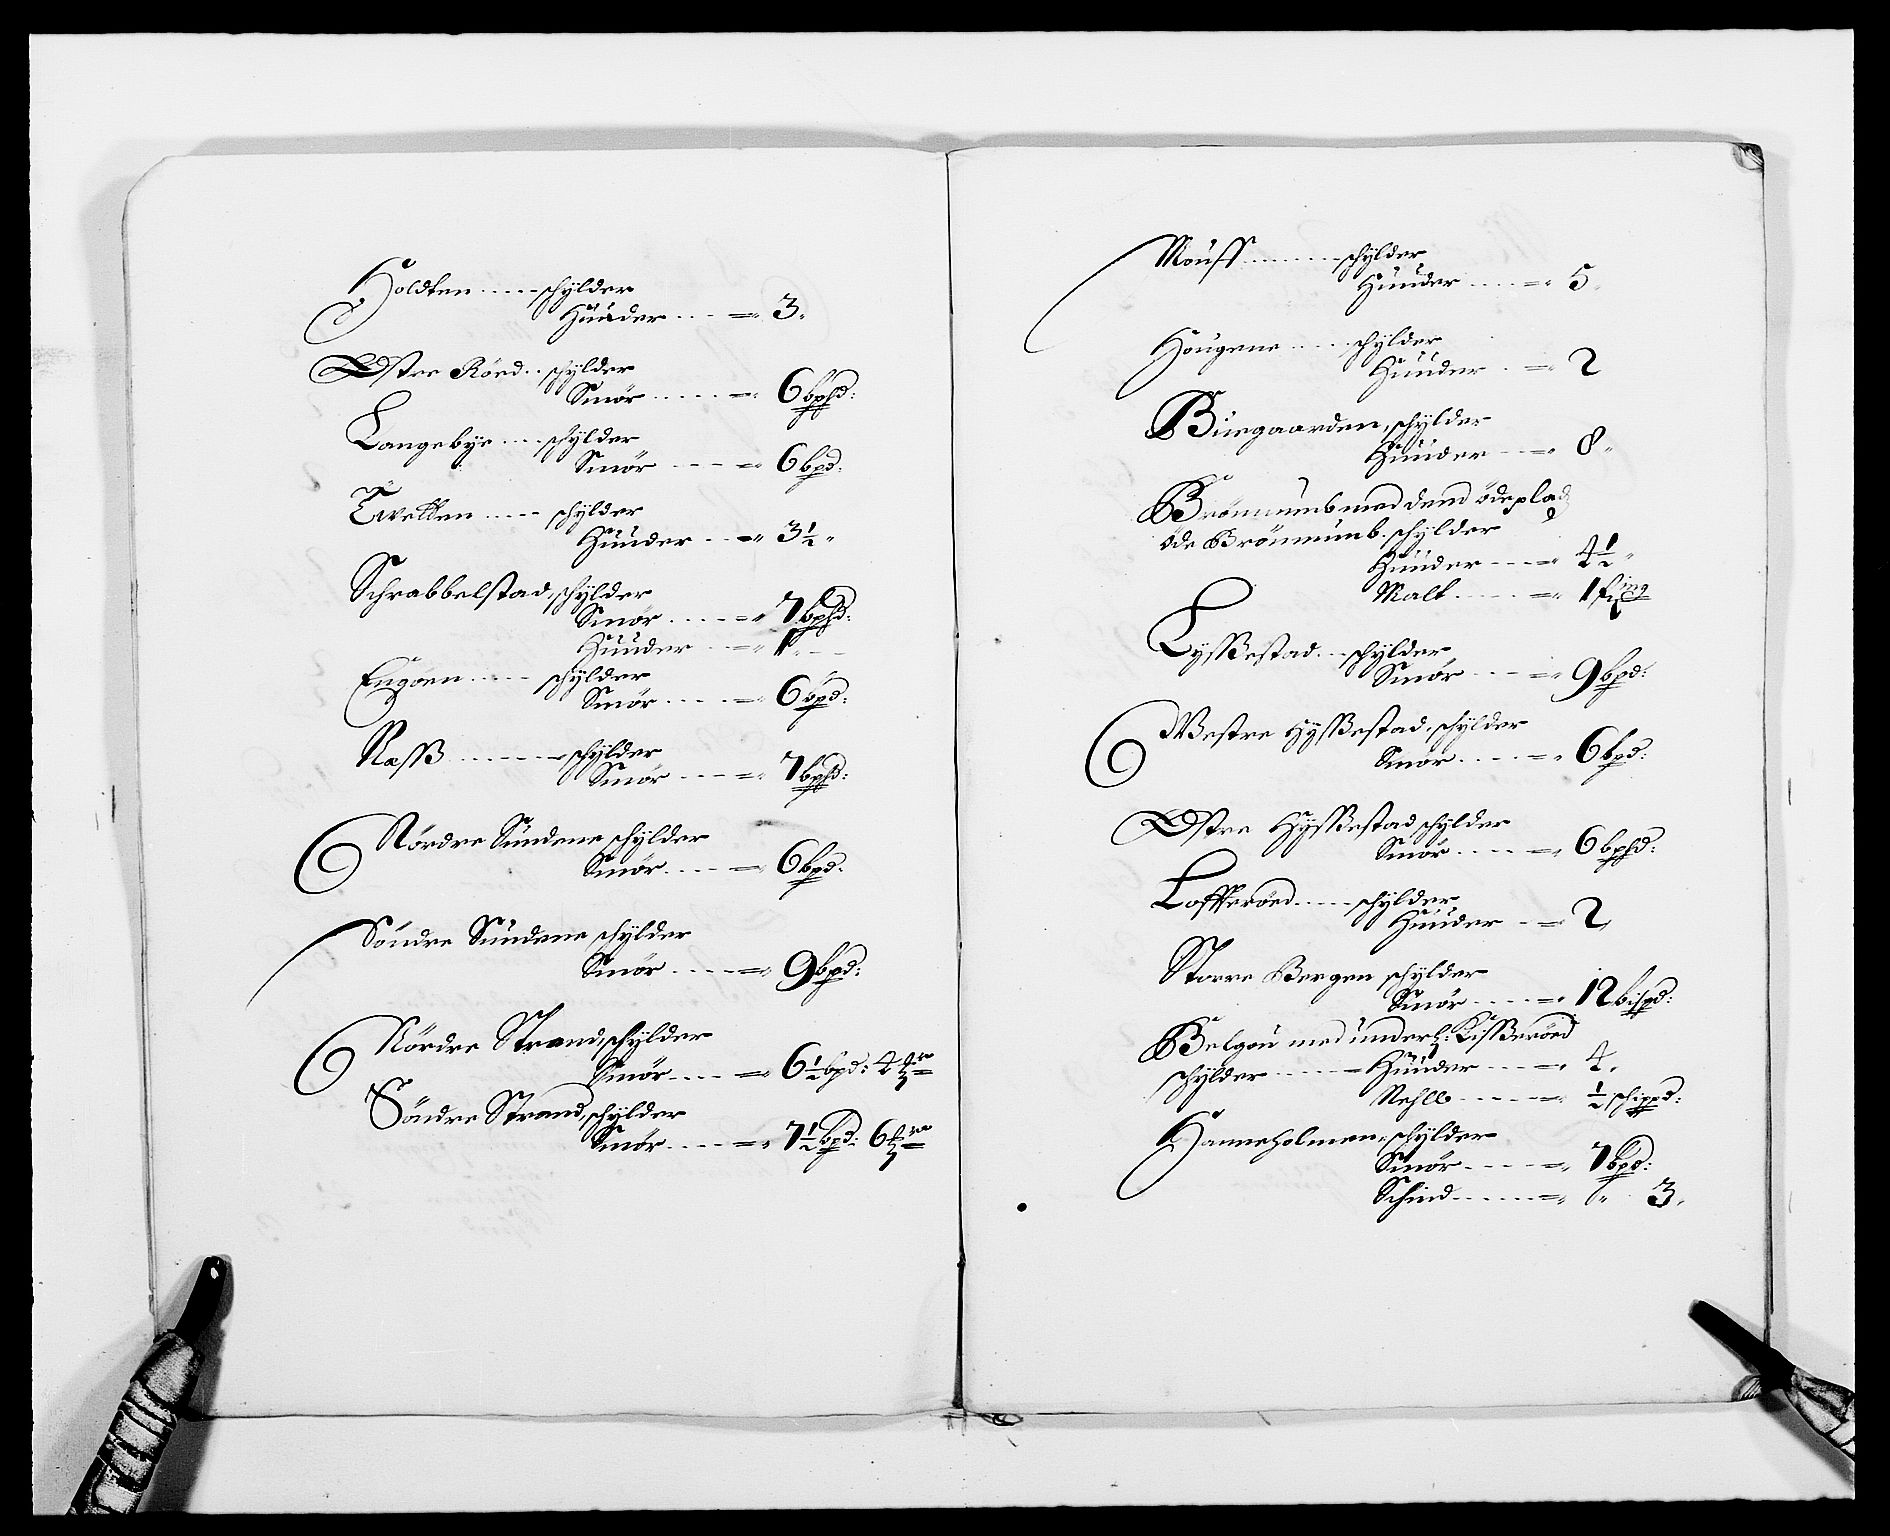 Holdten ..... schÿlder
Huuder .... = 3.
Østre Röed .. schÿlder
Smör ..... = 6 bphd:
Langebÿe .... schÿlder
Smör .... = 6 bpd:
Tvetten ..... schÿlder
Huuder ... = 3½.
Schrabbelstad, schÿlder
Smör ..... = 7 bphd:
Huuder ... = 1.
Engöen ..... schÿlder
Smör .... = 6 bpd:
Næsß ....... schÿlder
Smör .... = 7 bphd:
Nördre Sundene schÿlder
Smör .... = 6 bpd:
Söndre Sundene schÿlder
Smör .... = 9 bpd:
Nördre Strand, schÿlder
Smör .... = 6½ bpd: 4
Söndre Strand, schÿlder
Smör .... = 7½ bpd: 6
Mouss ........ schÿlder
Huuder .... = 5.
Hougene ..... schÿlder
Huuder . = 2
Buegaarden, schÿlder
Huuder ... = 8.
Brönnumb med dend ödeplads
öde Brönnumb. schÿlder
Huuder ... = 4½.
Malt ..... = 1 fring
Lysßestad ... schÿlder
Smör .... = 9 bpd:
Westre Hÿsßestad, schÿlder
Smör .... = 6 bpd:
Østre Hÿsßestad schÿlder
Smör .... = 6 bphd:
Lofferöed ..... schÿlder
Huuder .. = 2
Storre Bergen schÿlder
Smör .... = 12 bispd:
Belgou med underl: Kisßeröed
schÿlder ...... Huuder ... = 4.
Mehll ..... = ½ schippd:
Hanneholmen, schÿlder
Smör .... = 7 bpd:
Schind ..... = 3.